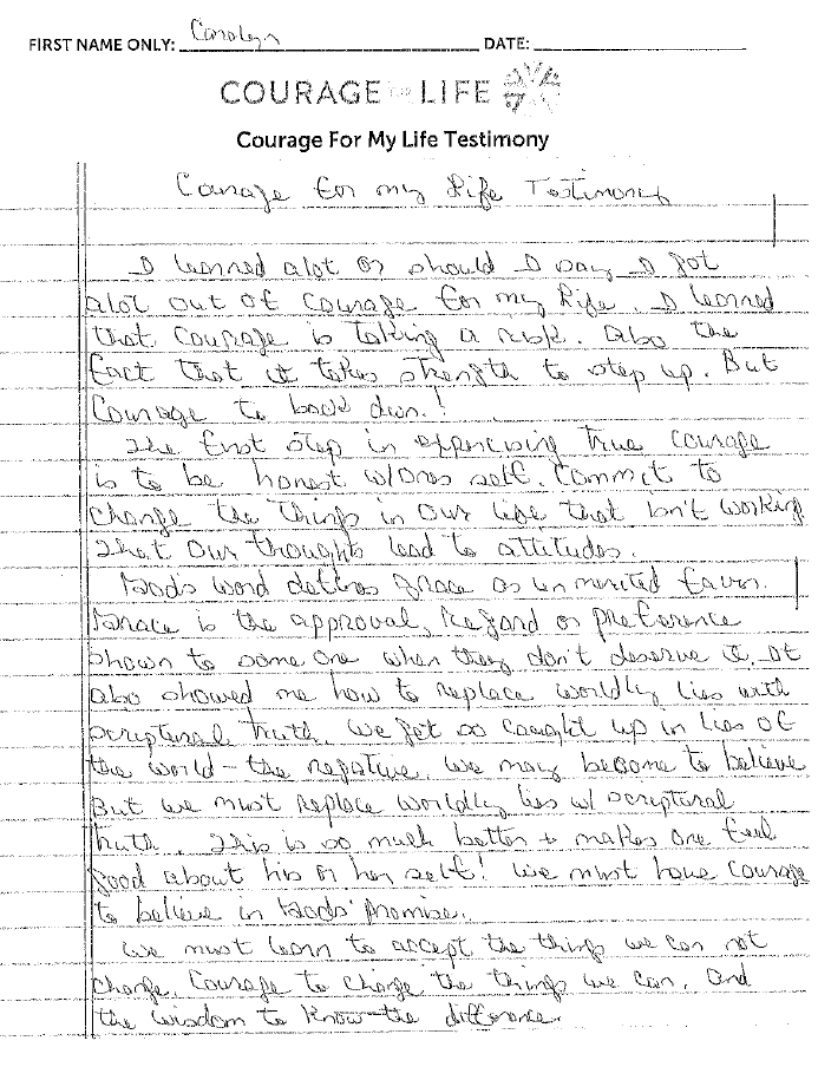 FIRST NAME ONLY: Carolyn DATE:
COURAGE FOR LIFE
Courage For My Life Testimony
Courage for my Life Testimony
I learned alot or should I say I got
alot out of Courage for my Life. I learned
that Courage is taking a risk. Also the
fact that it takes strength to step up. But
Courage to back down.!
The first step in expercising true courage
is to be honest w/ones self. Commit to
change the things in our life that isn't working
That our thoughts lead to attitudes.
God's word defines grace as unmerited favor.
Grace is the approval, Regard or preference
shown to some one when they don't deserve it. It
also showed me how to replace worldly lies with
scriptural truth. We get so caught up in lies of
the world - the negative. We may become to believe
But we must replace worldly lies w/ scriptural
truth. This is so much better + makes one feel
good about his or her self! We must have Courage
to believe in Gods' promise.
We must learn to accept the things we can not
change, Courage to change the things we can, and
the wisdom to know the difference.